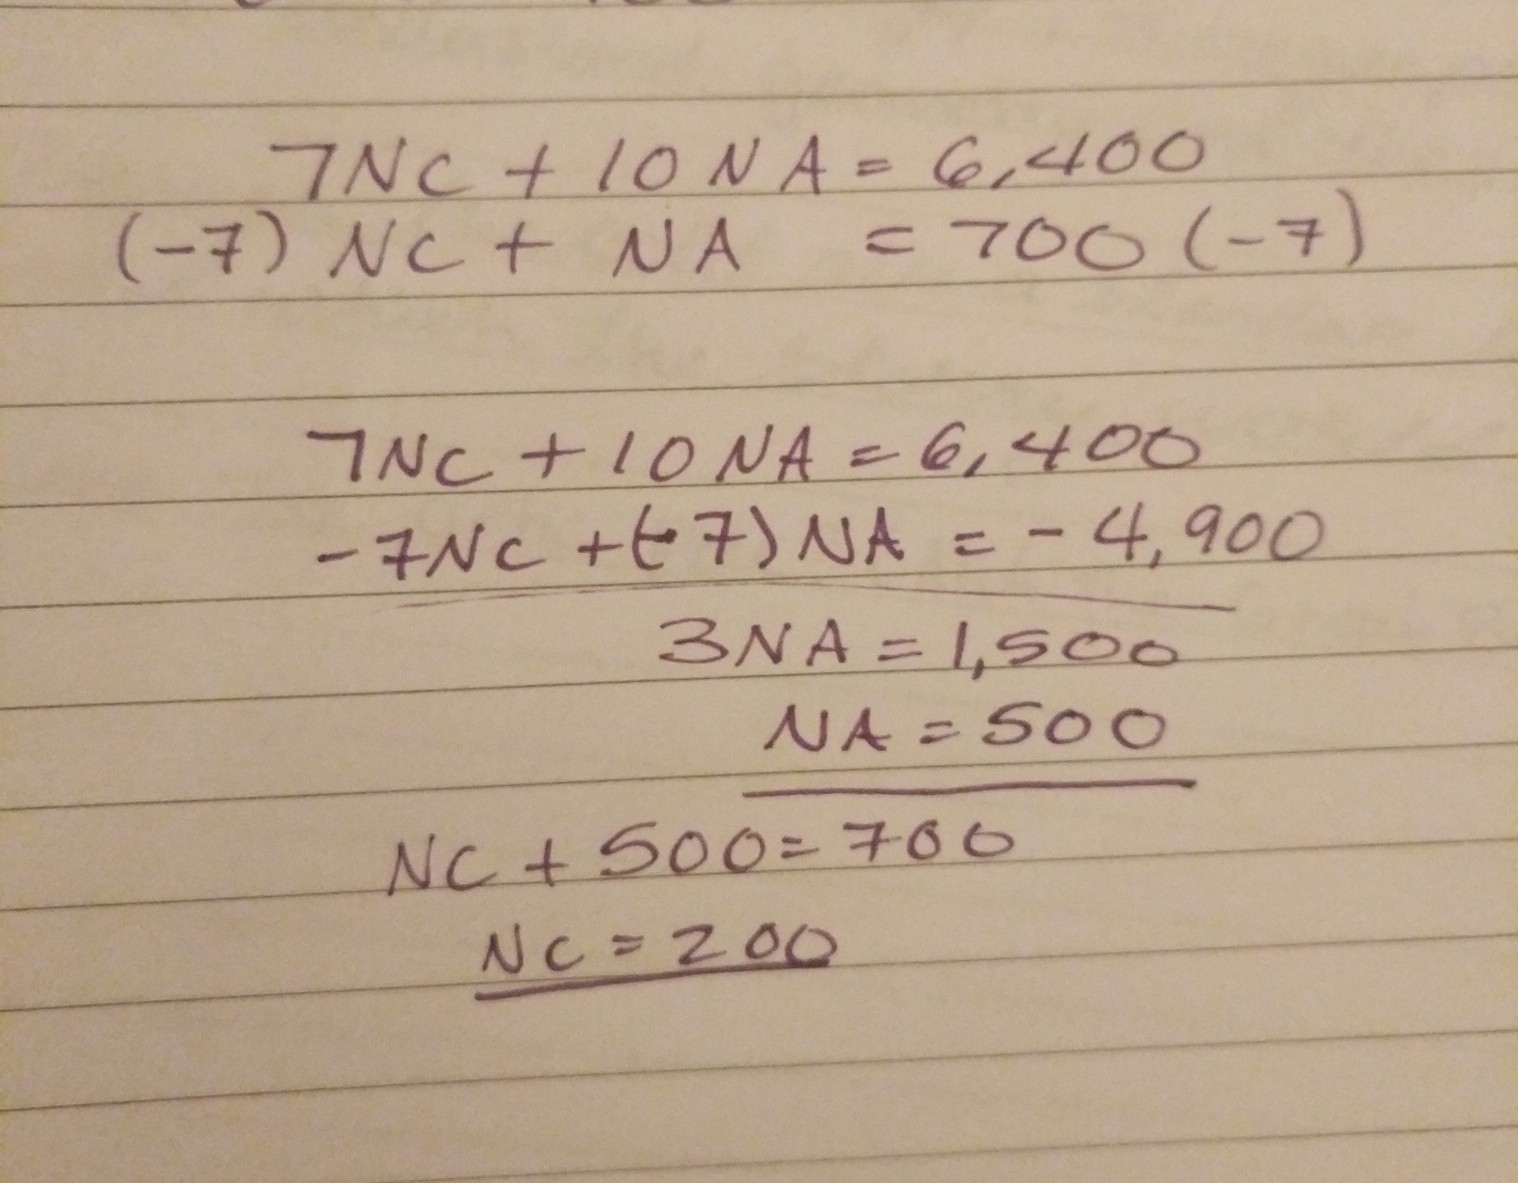 7NC + 10NA = 6,400
(-7) NC + NA = 700 (-7)
7NC + 10NA = 6,400
-7NC + (-7) NA = -4,900
3NA = 1,500
NA = 500
NC + 500 = 700
NC = 200